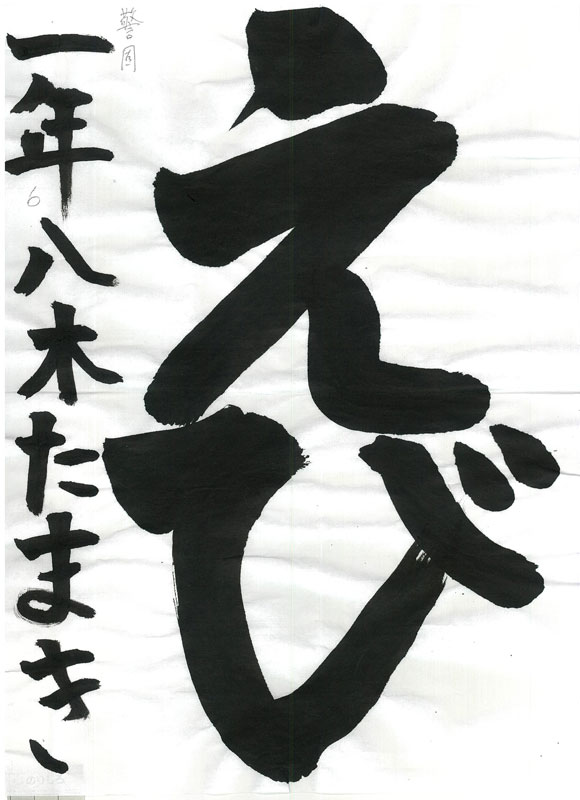 えび
一年八木たまき
6